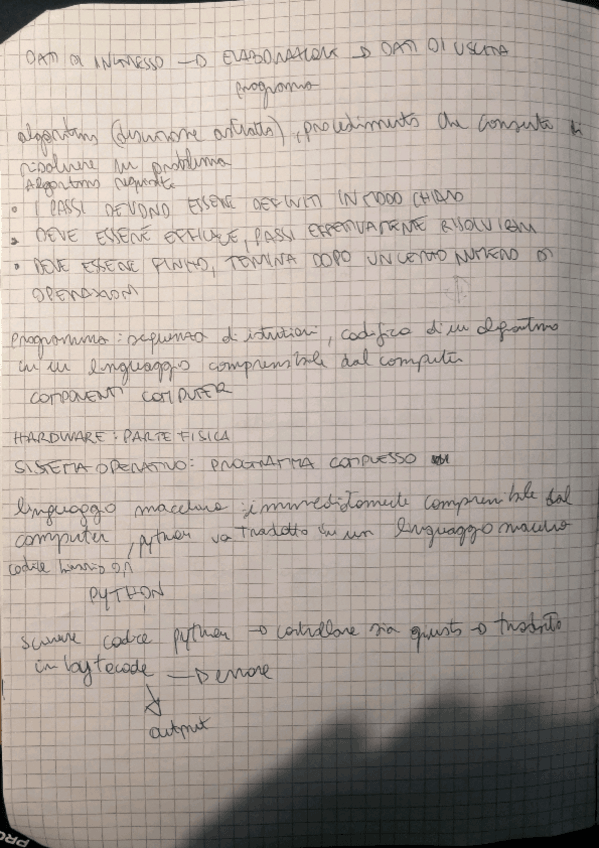 DATI DI INGRESSO → ELABORAZIONE → DATI DI USCITA
programma
algoritmo (descrizione astratta), procedimento che consente di
risolvere un problema
Algoritmo requisiti
• I PASSI DEVONO ESSERE DEFINITI IN MODO CHIARO
• DEVE ESSERE EFFICACE, PASSI EFFETTIVAMENTE RISOLVIBILI
• DEVE ESSERE FINITO, TERMINA DOPO UN CERTO NUMERO DI
OPERAZIONI
programma: sequenza di istruzioni, codifica di un algoritmo
in un linguaggio comprensibile dal computer
COMPONENTI COMPUTER
HARDWARE: PARTE FISICA
SISTEMA OPERATIVO: PROGRAMMA COMPLESSO
linguaggio macchina: immediatamente comprensibile dal
computer, python va tradotto in un linguaggio macchina
codice binario 0,1
PYTHON
scrivere codice python → controllare sia giusto → tradotto
in bytecode → errore
↓
output
PRO